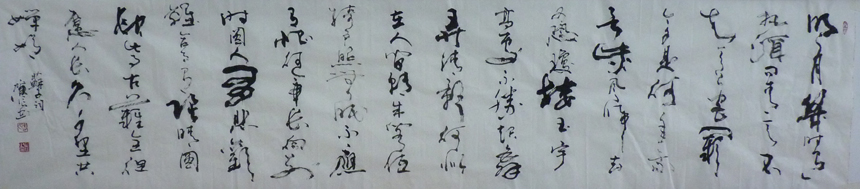 明月幾時有
把酒問青天不
知天上宮闕
今夕是何年我
欲乘風歸去
又恐瓊樓玉宇
高處不勝寒起舞
弄清影何似
在人間轉朱閣低
綺戶照無眠不應
有恨何事長向別
時圓人有悲歡
離合月有陰晴圓
缺此事古難全但
願人長久千里共
嬋娟